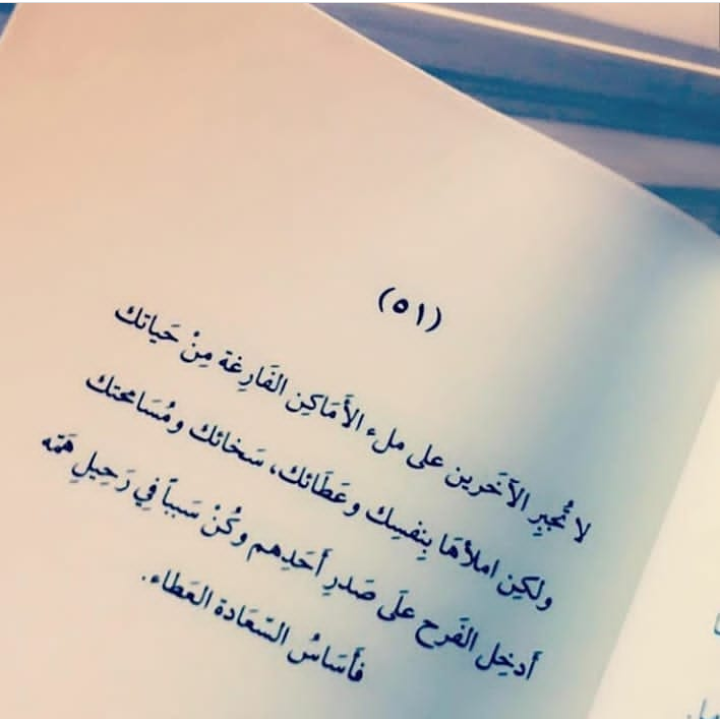 (٥١)
لا تُجبِرِ الآخَرين على ملء الأَمَاكِن الفَارِغة مِنْ حَياتك
ولكِن املأهَا بِنفسِك وعَطَائك، سَخائك ومُسَامحتك
أدخِل الفَرح علَى صَدرِ أَحَدِهم وكُنْ سَبباً فِي رَحِيلِ همّه
فأسَاسُ السّعَادة العَطاء.